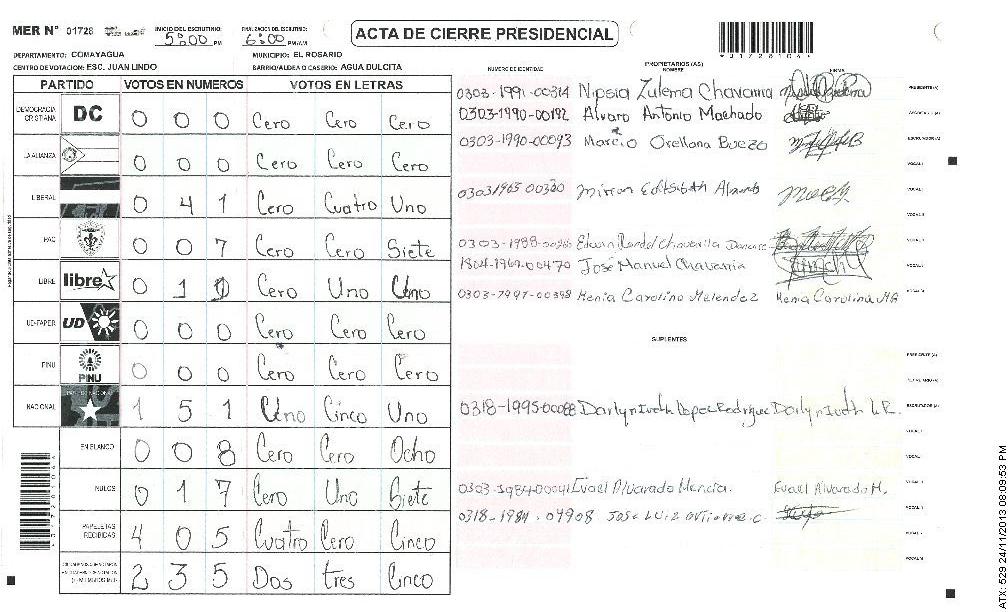 MER N° 01728 INICIO DEL ESCRUTINIO: 5:00 PM FINALIZACION DEL ESCRUTINIO: 6:00 PM/AM
ACTA DE CIERRE PRESIDENCIAL
DEPARTAMENTO: COMAYAGUA MUNICIPIO: EL ROSARIO
CENTRO DE VOTACION: ESC. JUAN LINDO BARRIO/ALDEA O CASERIO: AGUA DULCITA
PARTIDO VOTOS EN NUMEROS VOTOS EN LETRAS
DEMOCRACIA CRISTIANA DC 0 0 0 Cero Cero Cero
LA ALIANZA 0 0 0 Cero Cero Cero
LIBERAL 0 4 1 Cero Cuatro Uno
PAC 0 0 7 Cero Cero Siete
LIBRE libre 0 1 Cero Uno Uno
UD-FAPER UD 0 0 0 Cero Cero Cero
PINU PINU 0 0 0 Cero Cero Cero
NACIONAL 1 5 1 Uno Cinco Uno
EN BLANCO 0 0 8 Cero Cero Ocho
NULOS 0 1 7 Cero Uno Siete
PAPELETAS RECIBIDAS 4 0 5 Cuatro Cero Cinco
2 3 5 Dos tres Cinco
NUMERO DE IDENTIDAD PROPIETARIOS (AS) NOMBRE FIRMA
0303-1991-00314 Nipsia Zulema Chavarria PRESIDENTE (A)
0303-1990-00192 Alvaro Antonio Machado
0303-1990-00093 Marcio Orellana Buezo ESCRUTADOR (A)
VOCAL I
0303 1965 00320 Mirian
0303-1988- Edwin
1804-1969-00470 José Manuel Chavarria
Henia Carolina Melendez Henia Carolina
SUPLENTES
0318-1995-00088 Darlyn Iveth Lopez Rodriguez Darlyn Iveth L.R. ESCRUTADOR (A)
0303-1984-00041 Evael Alvarado Mencia. Evael Alvarado M.
0318-1984-04908 Jose Luiz
ATX: 529 24/11/2013 08:09:53 PM